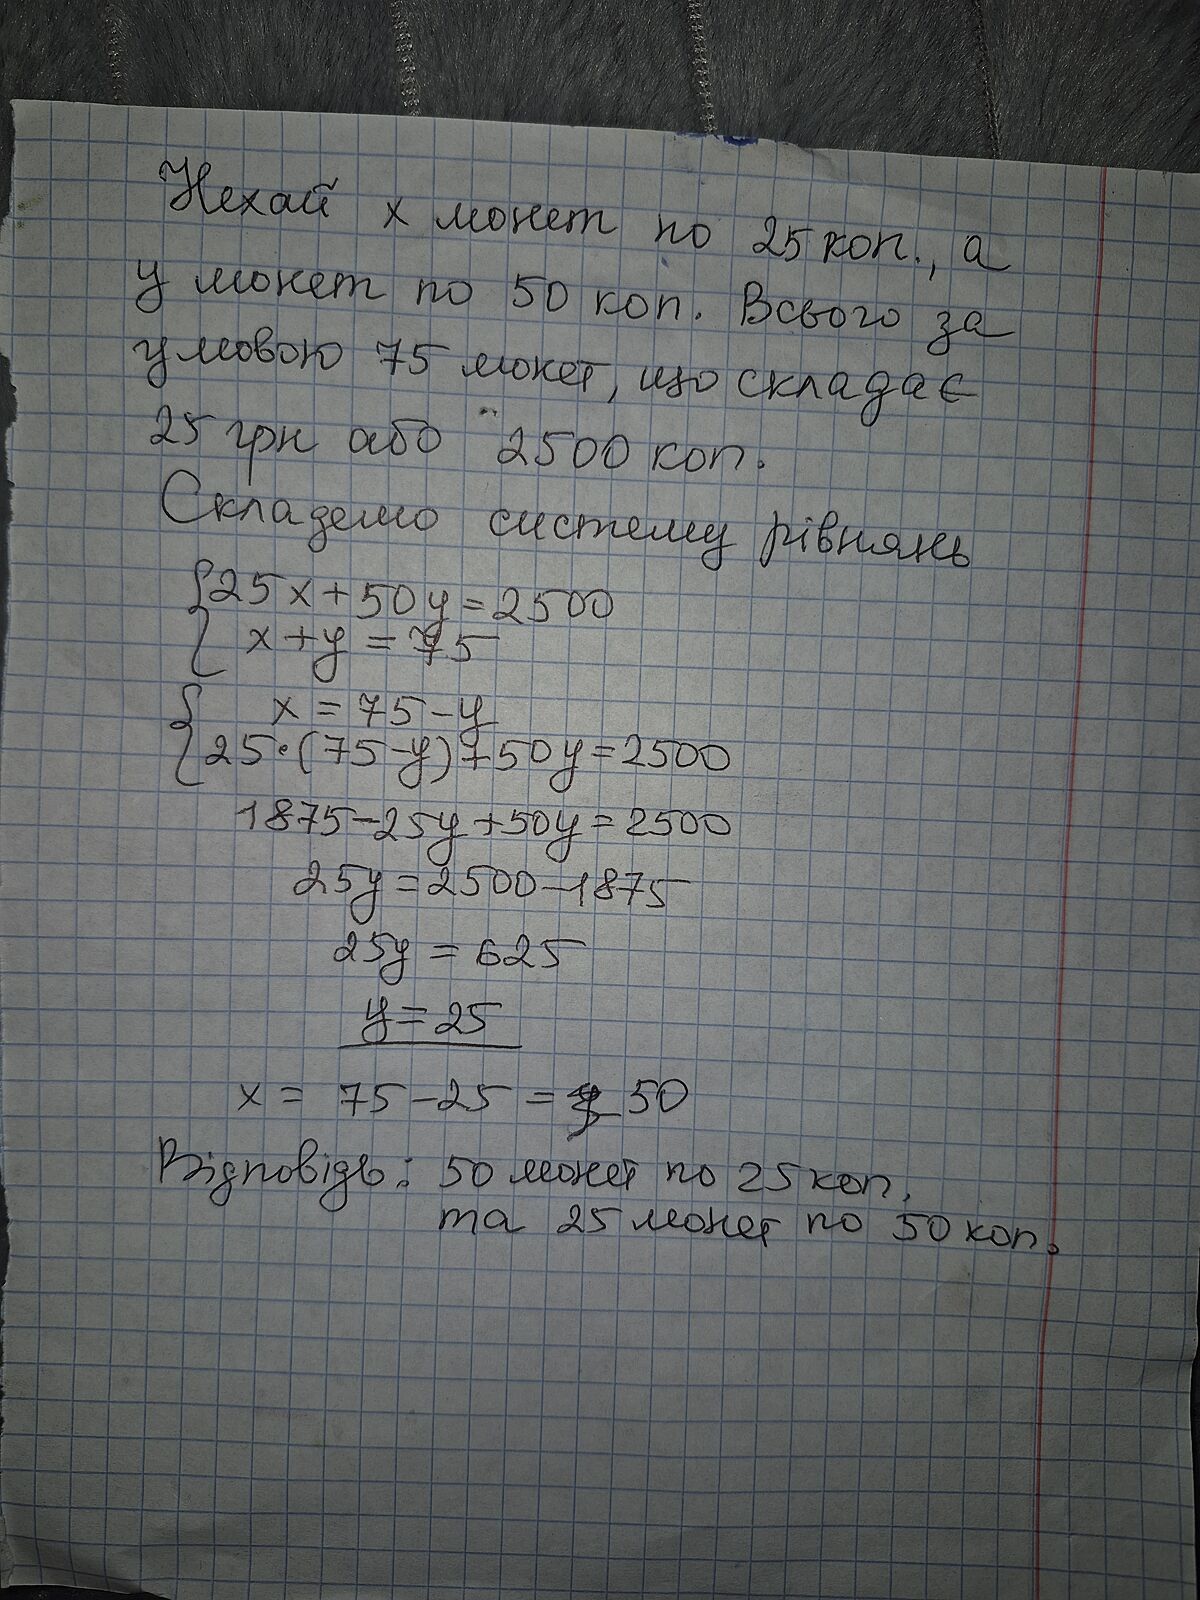 Нехай x монет по 25 коп., а
y монет по 50 коп. Всього за
умовою 75 монет, що складає
25 грн або 2500 коп.
Складемо систему рівнянь
{25x+50y=2500
x+y=75
{x=75-y
25·(75-y)+50y=2500
1875-25y+50y=2500
25y=2500-1875
25y=625
y=25
x=75-25=50
Відповідь: 50 монет по 25 коп.
та 25 монет по 50 коп.